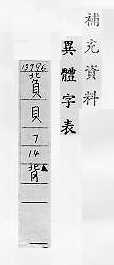 補充資料
異體字表
13796
貝
7
14
背